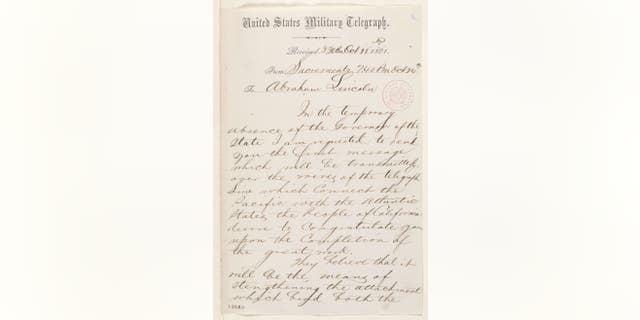 United States Military Telegraph.
Received, Oct 25 1861.
From Sacramento, 7.40 Pm Oct 24th
To Abraham Lincoln
In the temporary
absence of the Governor of the
State I am requested to send
you the first message
which will be transmitted
over the wires of the telegraph
line which Connect the
Pacific with the Atlantic
States, the People of California
desire to Congratulate you
upon the Completion of
the great work.
They believe that it
will be the means of
strengthening the attachment
which bind both the